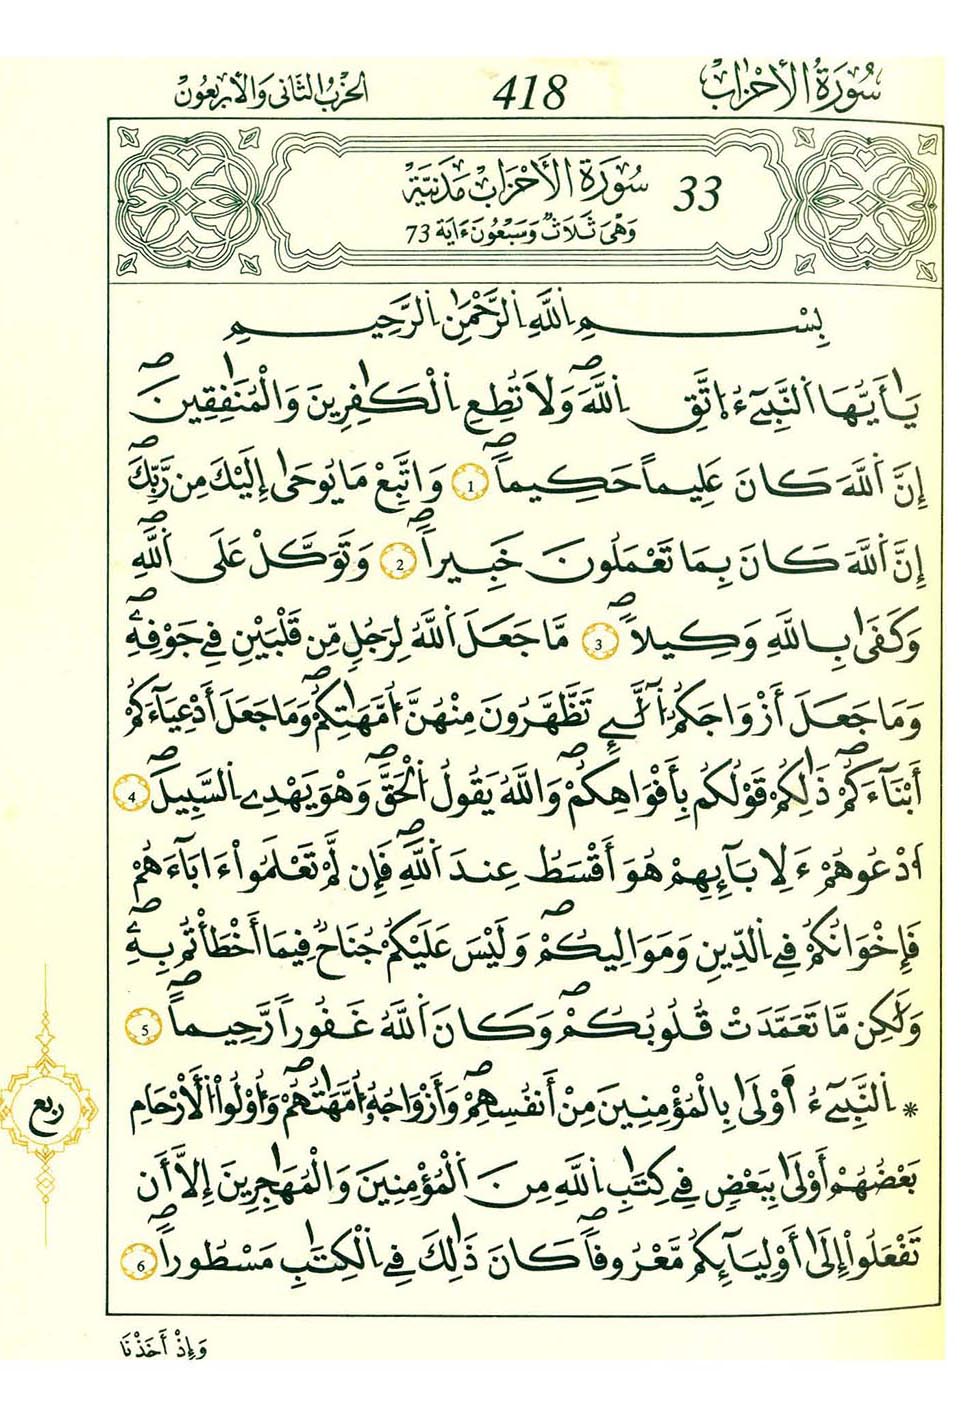 سُورَةُ الْأَحْزَابِ 418 الحِزْبُ الثَّانِي وَالْأَرْبَعُونَ
33 سُورَةُ الْأَحْزَابِ مَدَنِيَّة
وَهْيَ ثَلَاثٌ وَسَبْعُونَ ءَايَة 73
بِسْمِ اِللَّهِ اِلرَّحْمَٰنِ اِلرَّحِيمِ
يَٰأَيُّهَا اَلنَّبِيٓءُ اِتَّقِ اِللَّهَۖ وَلَا تُطِعِ اِلْكَٰفِرِينَ وَالْمُنَٰفِقِينَۖ
إِنَّ اَللَّهَ كَانَ عَلِيماً حَكِيماًۖ 1 وَاتَّبِعْ مَا يُوحَىٰ إِلَيْكَ مِن رَّبِّكَۖ
إِنَّ اَللَّهَ كَانَ بِمَا تَعْمَلُونَ خَبِيراًۖ 2 وَتَوَكَّلْ عَلَى اَللَّهِۖ
وَكَفَىٰ بِاللَّهِ وَكِيلاًۖ 3 مَّا جَعَلَ اَللَّهُ لِرَجُلٍ مِّن قَلْبَيْنِ فِے جَوْفِهِۦۖ
وَمَا جَعَلَ أَزْوَاجَكُمُ اُلَّٰٓـِٔے تَظَّهَّرُونَ مِنْهُنَّ أُمَّهَٰتِكُمْۖ وَمَا جَعَلَ أَدْعِيَآءَكُمْ
أَبْنَآءَكُمْۖ ذَٰلِكُمْ قَوْلُكُم بِأَفْوَاهِكُمْۖ وَاللَّهُ يَقُولُ اُلْحَقَّۖ وَهْوَ يَهْدِے اِلسَّبِيلَۖ 4
اُدْعُوهُمْ ءَلِابَآئِهِمْ هُوَ أَقْسَطُ عِندَ اَللَّهِۖ فَإِن لَّمْ تَعْلَمُواْ ءَابَآءَهُمْ
فَإِخْوَانُكُمْ فِے اِلدِّينِ وَمَوَالِيكُمْۖ وَلَيْسَ عَلَيْكُمْ جُنَاحٌ فِيمَا أَخْطَأْتُم بِهِۦۖ
وَلَٰكِن مَّا تَعَمَّدَتْ قُلُوبُكُمْۖ وَكَانَ اَللَّهُ غَفُوراً رَّحِيماًۖ 5
* اِلنَّبِيٓءُ أَوْلَىٰ بِالْمُؤْمِنِينَ مِنْ أَنفُسِهِمْۖ وَأَزْوَاجُهُۥ أُمَّهَٰتُهُمْۖ وَأُوْلُواْ اُلْأَرْحَامِ
بَعْضُهُمْ أَوْلَىٰ بِبَعْضٍ فِے كِتَٰبِ اِللَّهِ مِنَ اَلْمُؤْمِنِينَ وَالْمُهَٰجِرِينَ إِلَّا أَن
تَفْعَلُواْ إِلَىٰ أَوْلِيَآئِكُم مَّعْرُوفاًۖ كَانَ ذَٰلِكَ فِے اِلْكِتَٰبِ مَسْطُوراًۖ 6
ربع
وَإِذْ أَخَذْنَا